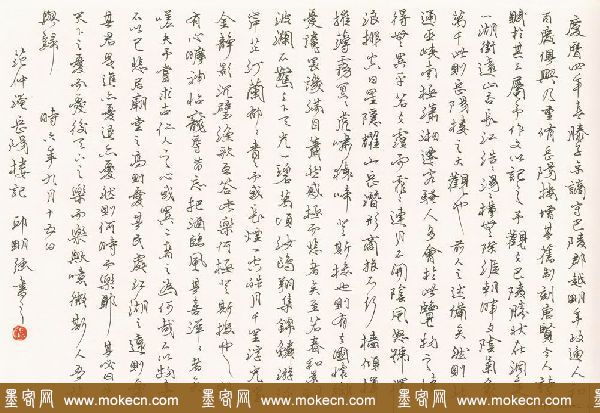 慶曆四年春滕子京謫守巴陵郡越明年政通人和
百廢俱興乃重修岳陽樓增其舊制刻唐賢今人詩
賦於其上屬予作文以記之予觀夫巴陵勝狀在洞庭
一湖銜遠山吞長江浩浩湯湯橫無際涯朝暉夕陰氣象
萬千此則岳陽樓之大觀也前人之述備矣然則北
通巫峽南極瀟湘遷客騷人多會於此覽物之情
得無異乎若夫霪雨霏霏連月不開陰風怒號濁
浪排空日星隱耀山岳潛形商旅不行檣傾楫
摧薄暮冥冥虎嘯猿啼登斯樓也則有去國懷鄉
憂讒畏譏滿目蕭然感極而悲者矣至若春和景
波瀾不驚上下天光一碧萬頃沙鷗翔集錦鱗游
岸芷汀蘭郁郁青青而或長煙一空皓月千里浮光
金靜影沉璧漁歌互答此樂何極登斯樓也
有心曠神怡寵辱皆忘把酒臨風其喜洋洋者
嗟夫予嘗求古仁人之心或異二者之為何哉不以物
不以己悲居廟堂之高則憂其民處江湖之遠則
其君是進亦憂退亦憂然則何時而樂耶其必曰
天下之憂而憂後天下之樂而樂歟噫微斯人吾
與歸 時六年九月十五日
范仲淹岳陽樓記 邱明強書之
墨客网 www.mokecn.com 墨客网 www.mokecn.com